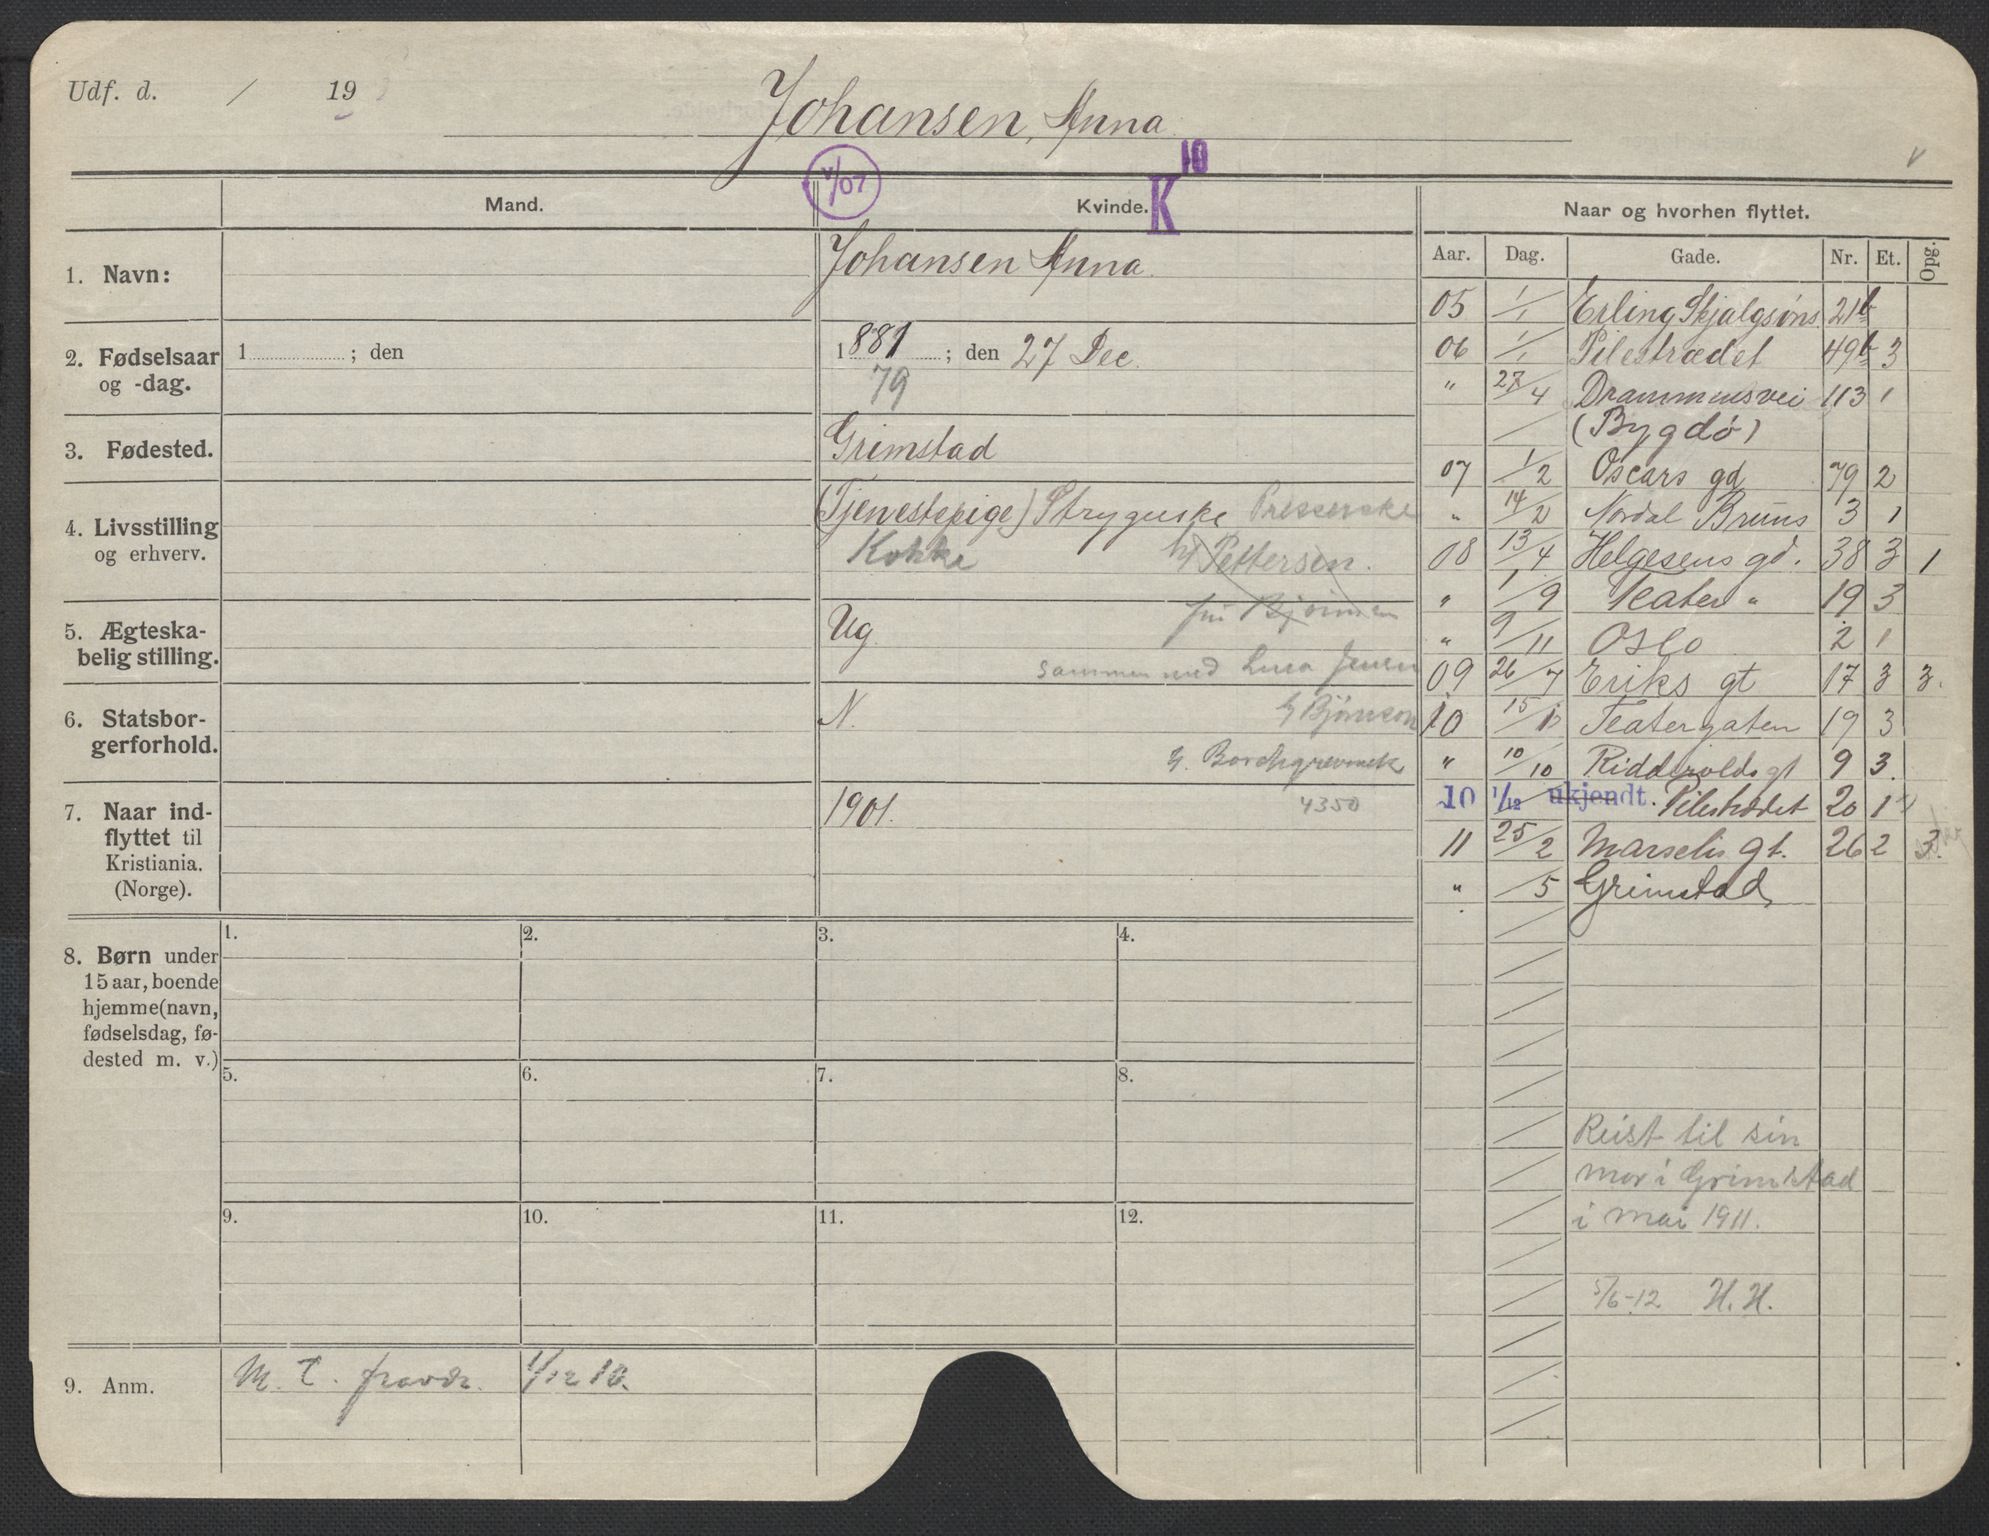 Udf. d. / 19
Johansen, Anna
v/07
K 10
v
Mand.
Kvinde.
Naar og hvorhen flyttet.
Aar. Dag. Gade. Nr. Et. Opg.
1. Navn:
Johansen Anna.
2. Fødselsaar
og -dag.
1 ; den
1881 ; den 27 Dec.
79
3. Fødested.
Grimstad
4. Livsstilling
og erhverv.
(Tjenestepige) Strygerske Presserske
Kokke h/ Pettersen.
fru
5. Ægteska-
belig stilling.
Ug.
sammen med Jensen
6. Statsbor-
gerforhold.
N. h/ Bjørnson
h. Borchgrevink
7. Naar ind-
flyttet til
Kristiania.
(Norge).
1901. 4350
05 1/1 Erling Skjalgsøns 21b
06 1/1 Pilestrædet 49b 3
" 27/4 Drammensvei 113 1
/ (Bygdø)
07 1/2 Oscars gd 79 2
" 14/2 Nordal Bruns 3 1
08 13/4 Helgesens gd. 38 3 1
" 1/9 Teater " 19 3
" 9/11 Oslo 2 1
09 26/7 Eriks gt 17 3 3.
10 15/1 Teatergaten 19 3
" 10/10 Riddervolds gt 9 3.
10 1/12 ukjendt. Pilestrædet 20 1
11 25/2 Marselis gt. 26 2 3.
" /5 Grimstad
8. Børn under
15 aar, boende
hjemme (navn,
fødselsdag, fø-
dested m. v.)
1. 2. 3. 4.
5. 6. 7. 8.
9. 10. 11. 12.
Reist til sin
mor i Grimstad
i mai 1911.
5/6-12 H. H.
9. Anm.
M. T. fravær. 1/12 10.